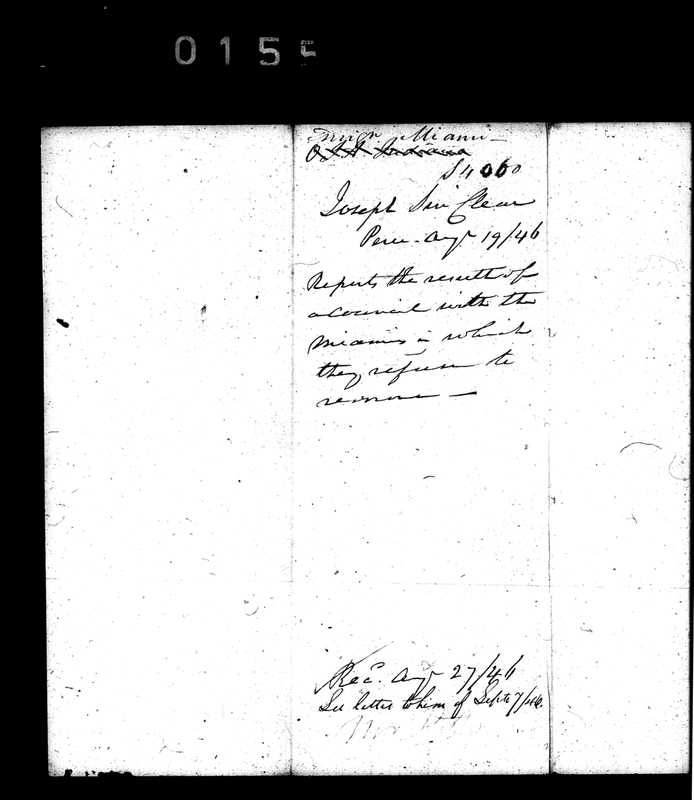 0155
Emign Miami
O.I.A. Indiana
S4060
Joseph Sin Clear
Peru. Augt 19/46
Reports the result of
a Council with the
Miamis in which
they refuse to
remove —
Rec. Augt 27/46
See letter to him of Sept 7/46.